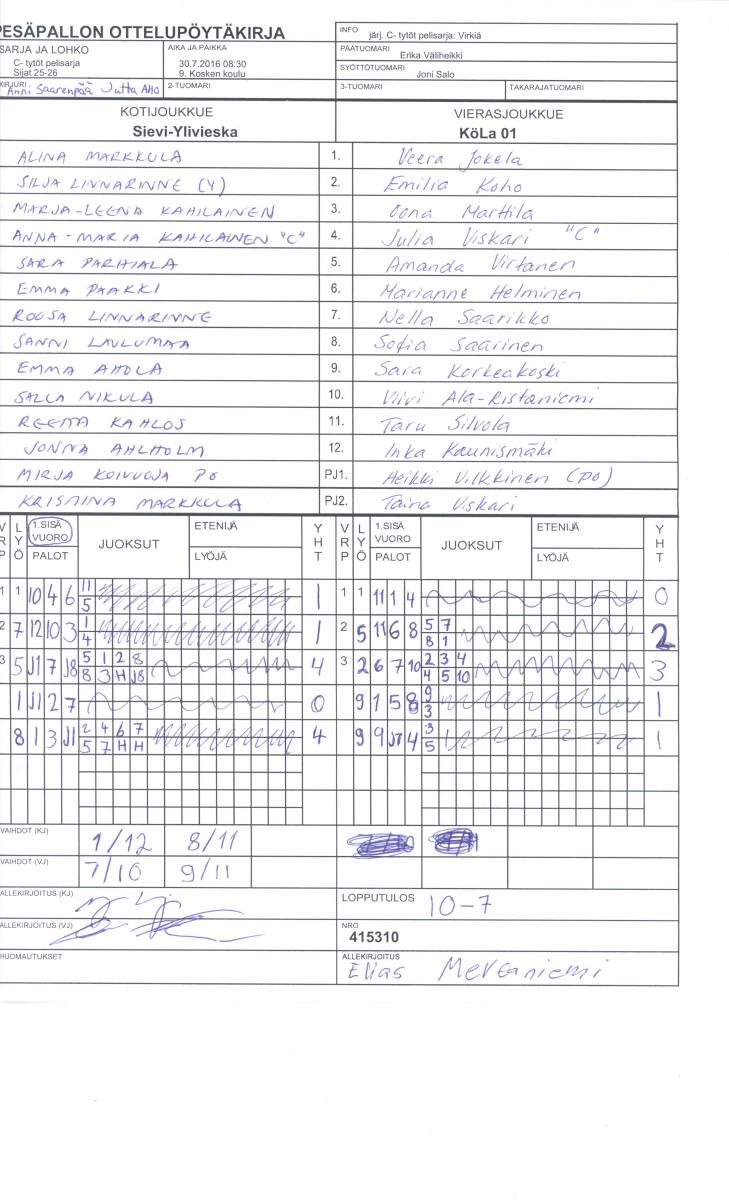 PESÄPALLON OTTELUPÖYTÄKIRJA
INFO järj. C- tytöt pelisarja: Virkiä
SARJA JA LOHKO
C- tytöt pelisarja
Sijat 25-26
AIKA JA PAIKKA
30.7.2016 08:30
9. Kosken koulu
PÄÄTUOMARI Erika Väliheikki
SYÖTTÖTUOMARI Joni Salo
KIRJURI: Anni Saarenpää Jutta Aho
2-TUOMARI
3-TUOMARI
TAKARAJATUOMARI
KOTIJOUKKUE
Sievi-Ylivieska
VIERASJOUKKUE
KöLa 01
ALINA MARKKULA 1. Veera Jokela
SILJA LINNARINNE (Y) 2. Emilia Koho
MARJA-LEENA KAHILAINEN 3. Oona Marttila
ANNA-MARIA KAHILAINEN "C" 4. Julia Viskari "C"
SARA PARHIALA 5. Amanda Virtanen
EMMA PAAKKI 6. Marianne Helminen
ROOSA LINNARINNE 7. Nella Saarikko
SANNI LAULUMAA 8. Sofia Saarinen
EMMA AHOLA 9. Sara Korkeakoski
SALLA NIKULA 10. Viivi Ala-Ristaniemi
REETTA KAHLOS 11. Taru Silvola
JONNA AHLHOLM 12. Inka Kaunismäki
MIRJA KOIVUOJA PO PJ1. Heikki Vilkkinen (po)
KRISTIINA MARKKULA PJ2. Taina Viskari
VRP LYÖ 1.SISÄ VUORO PALOT JUOKSUT ETENIJÄ LYÖJÄ YHT VRP LYÖ 1.SISÄ VUORO PALOT JUOKSUT ETENIJÄ LYÖJÄ YHT
1 1 10 4 6 11 1 1 1 11 1 4 0
5
2 7 12 10 3 1 1 2 5 11 6 8 5 7 2
4 8 1
3 5 J1 7 J8 5 1 2 8 4 3 2 6 7 10 2 3 4 3
8 3 H J8 4 5 10
1 J1 2 7 0 9 1 5 8 9 1
3
8 1 3 J1 2 4 6 7 4 9 9 J7 4 3 1
5 7 H H 5
VAIHDOT (KJ) 1/12 8/11
VAIHDOT (VJ) 7/10 9/11
ALLEKIRJOITUS (KJ)
LOPPUTULOS 10-7
ALLEKIRJOITUS (VJ)
NRO
415310
HUOMAUTUKSET
ALLEKIRJOITUS
Elias